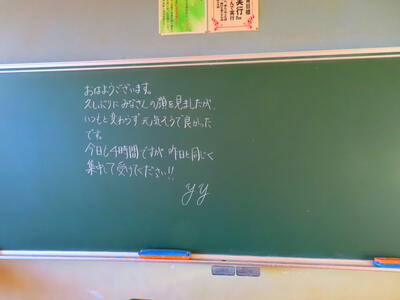 実行
おはようございます。
久しぶりにみなさんの顔を見ましたが、
いつもと変わらず元気そうで良かった
です。
今日も4時間ですが、昨日と同じく
集中して受けてください!!
yy